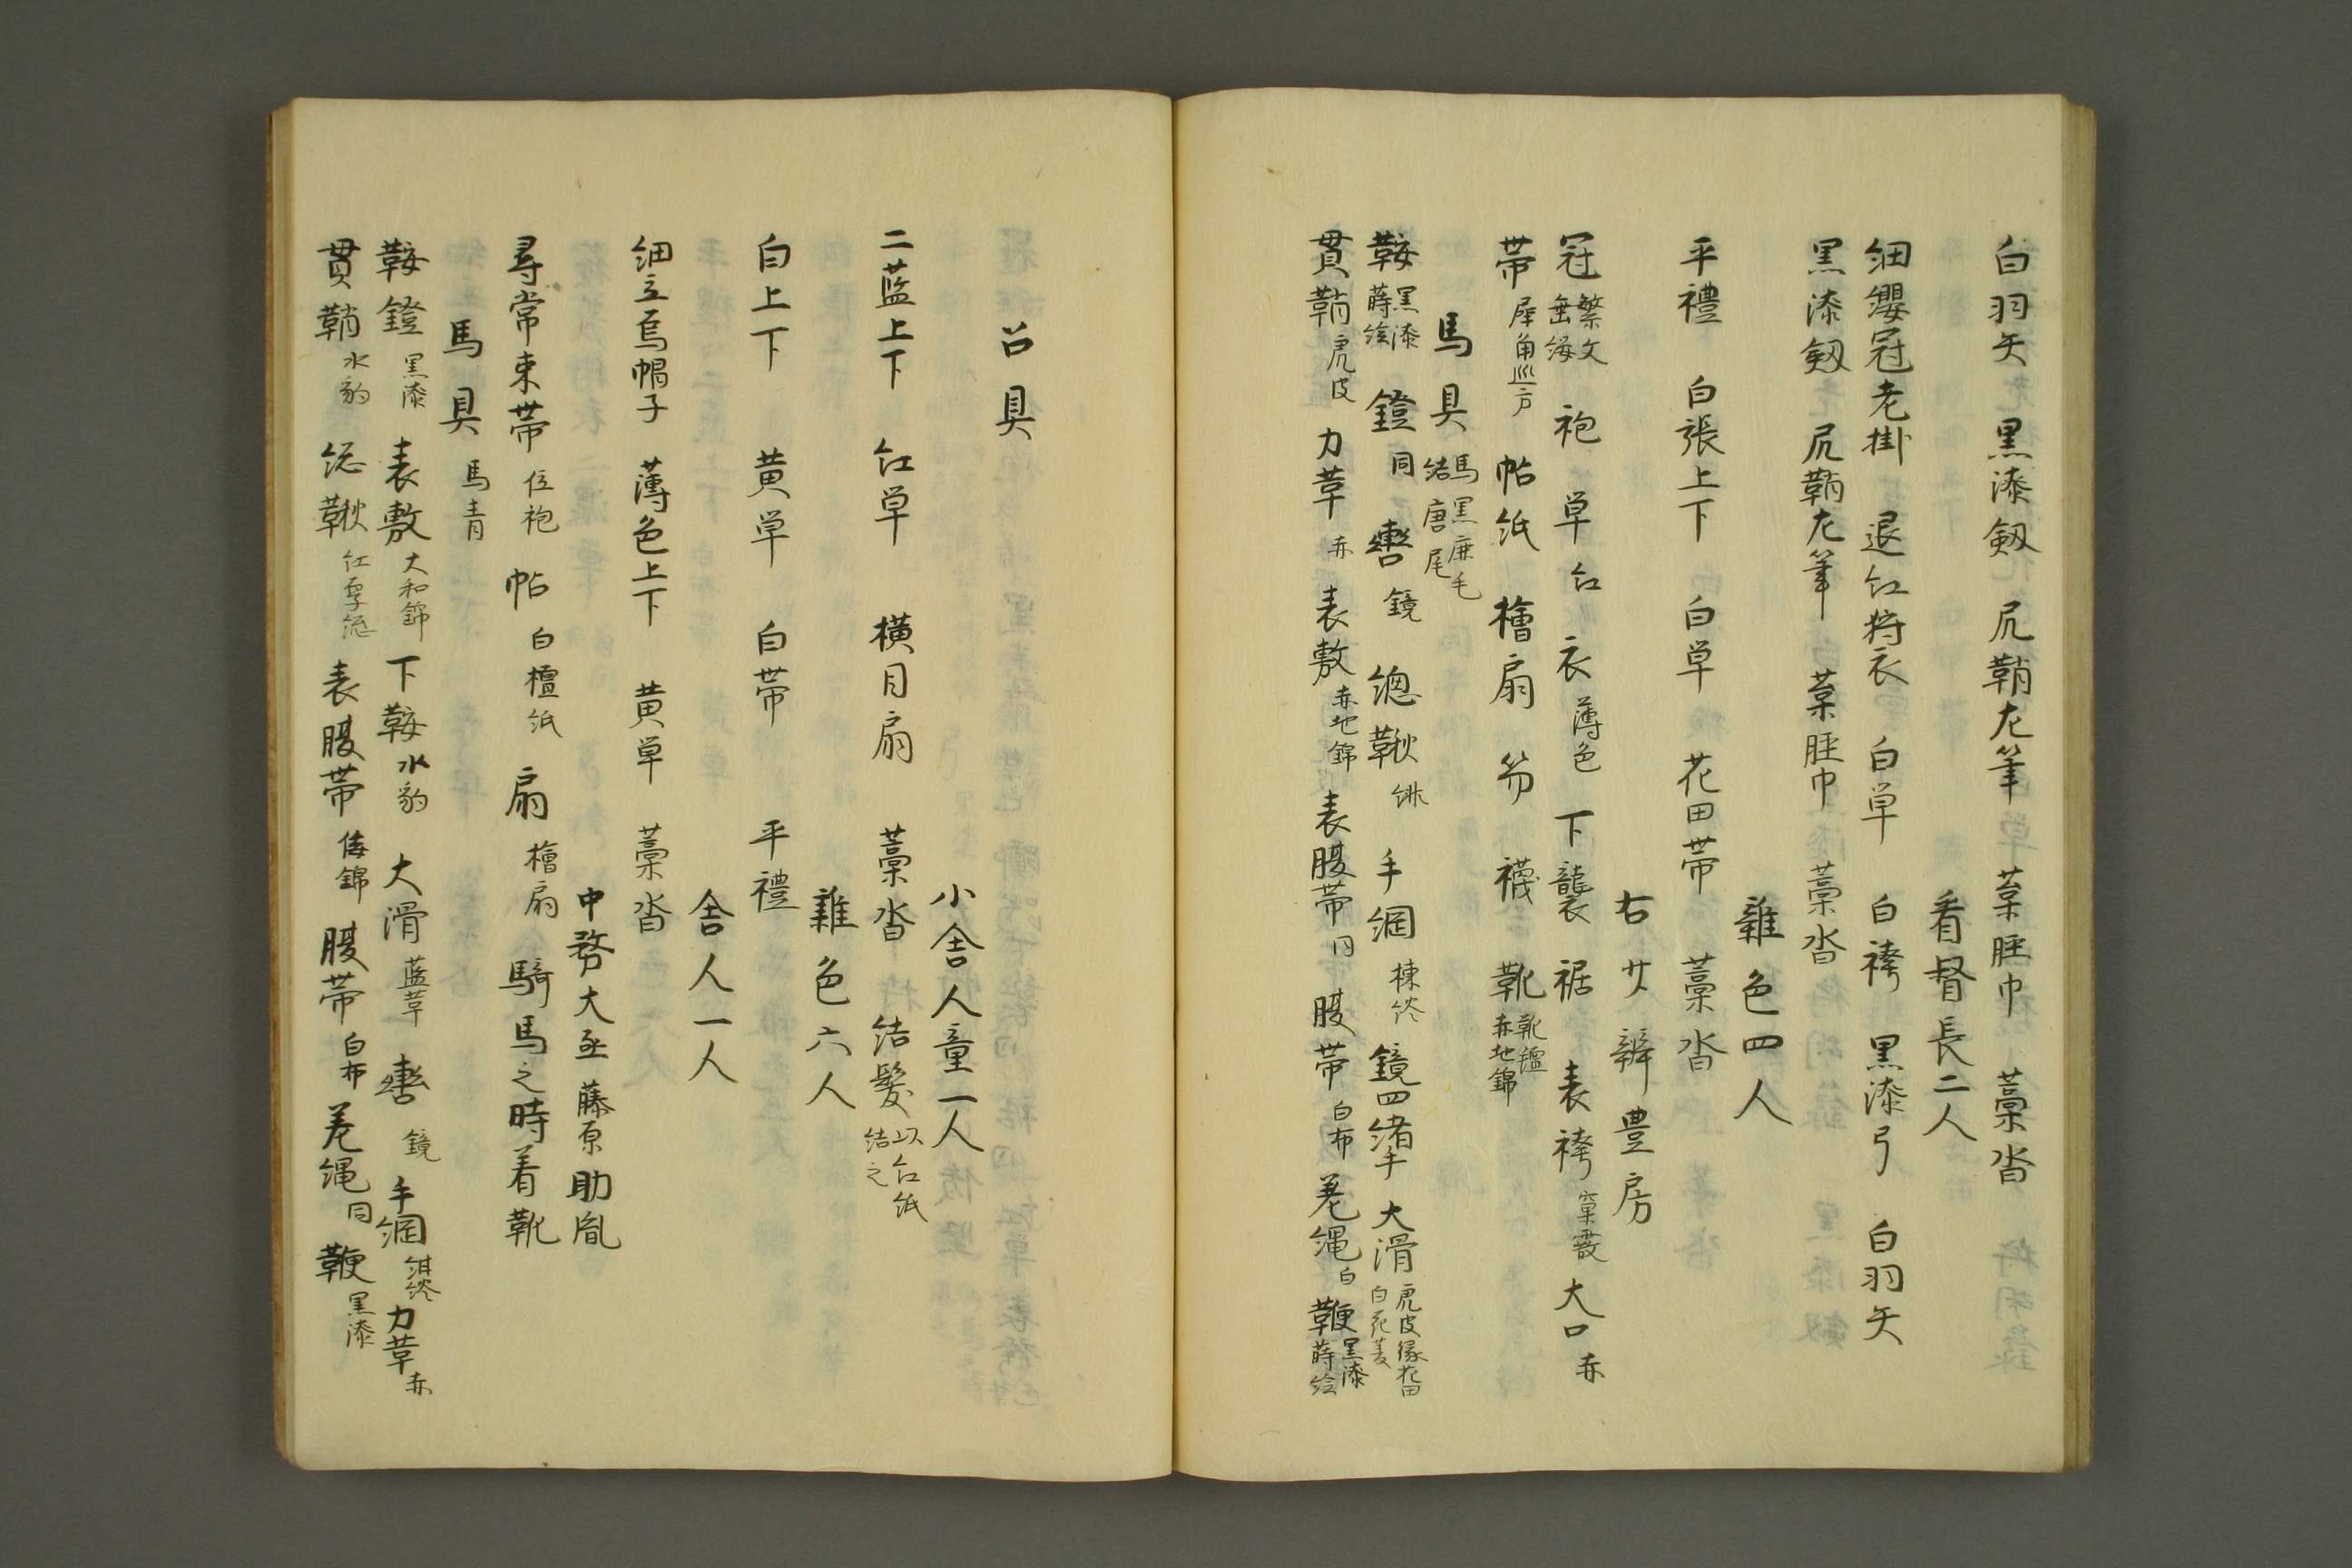 白羽矢 黒漆剱 尻鞘左筆 葉脛巾 藁沓
看督長二人
細纓冠老掛 退紅狩衣 白単 白袴 黒漆弓 白羽矢
黒漆剱 尻鞘左筆 葉脛巾 藁沓
雜色四人
平禮 白張上下 白単 花田帯 藁沓
右少辨豊房
冠 繁文 垂纓 袍 単 紅 衣 薄色 下襲 裾 表袴 窠霰 大口 赤
帯 犀角巡方 帖紙 檜扇 笏 襪 靴 靴氈 赤地錦
馬具 馬黒鹿毛 結唐尾
鞍 黒漆 蒔絵 鐙 同 轡 鏡 總鞦 手綱 楝 鏡四緒手 大滑 虎皮縁花田 白花菱
貫鞘 虎皮 力革 赤 表敷 赤地錦 表腹帯 同 腹帯 白布 差縄 白 鞭 黒漆 蒔絵
召具
小舎人童一人
二藍上下 紅単 横目扇 藁沓 結髪 以紅紙 結之
雜色六人
白上下 黄単 白帯 平禮
舎人一人
細立烏帽子 薄色上下 黄単 藁沓
中務大丞 藤原助胤
尋常束帯 位袍 帖 白檀紙 扇 檜扇 騎馬之時着靴
馬具 馬青
鞍鐙 黒漆 表敷 大和錦 下鞍 水豹 大滑 藍革 轡 鏡 手綱 力革 赤
貫鞘 水豹 総鞦 表腹帯 倭錦 腹帯 白布 差縄 同 鞭 黒漆